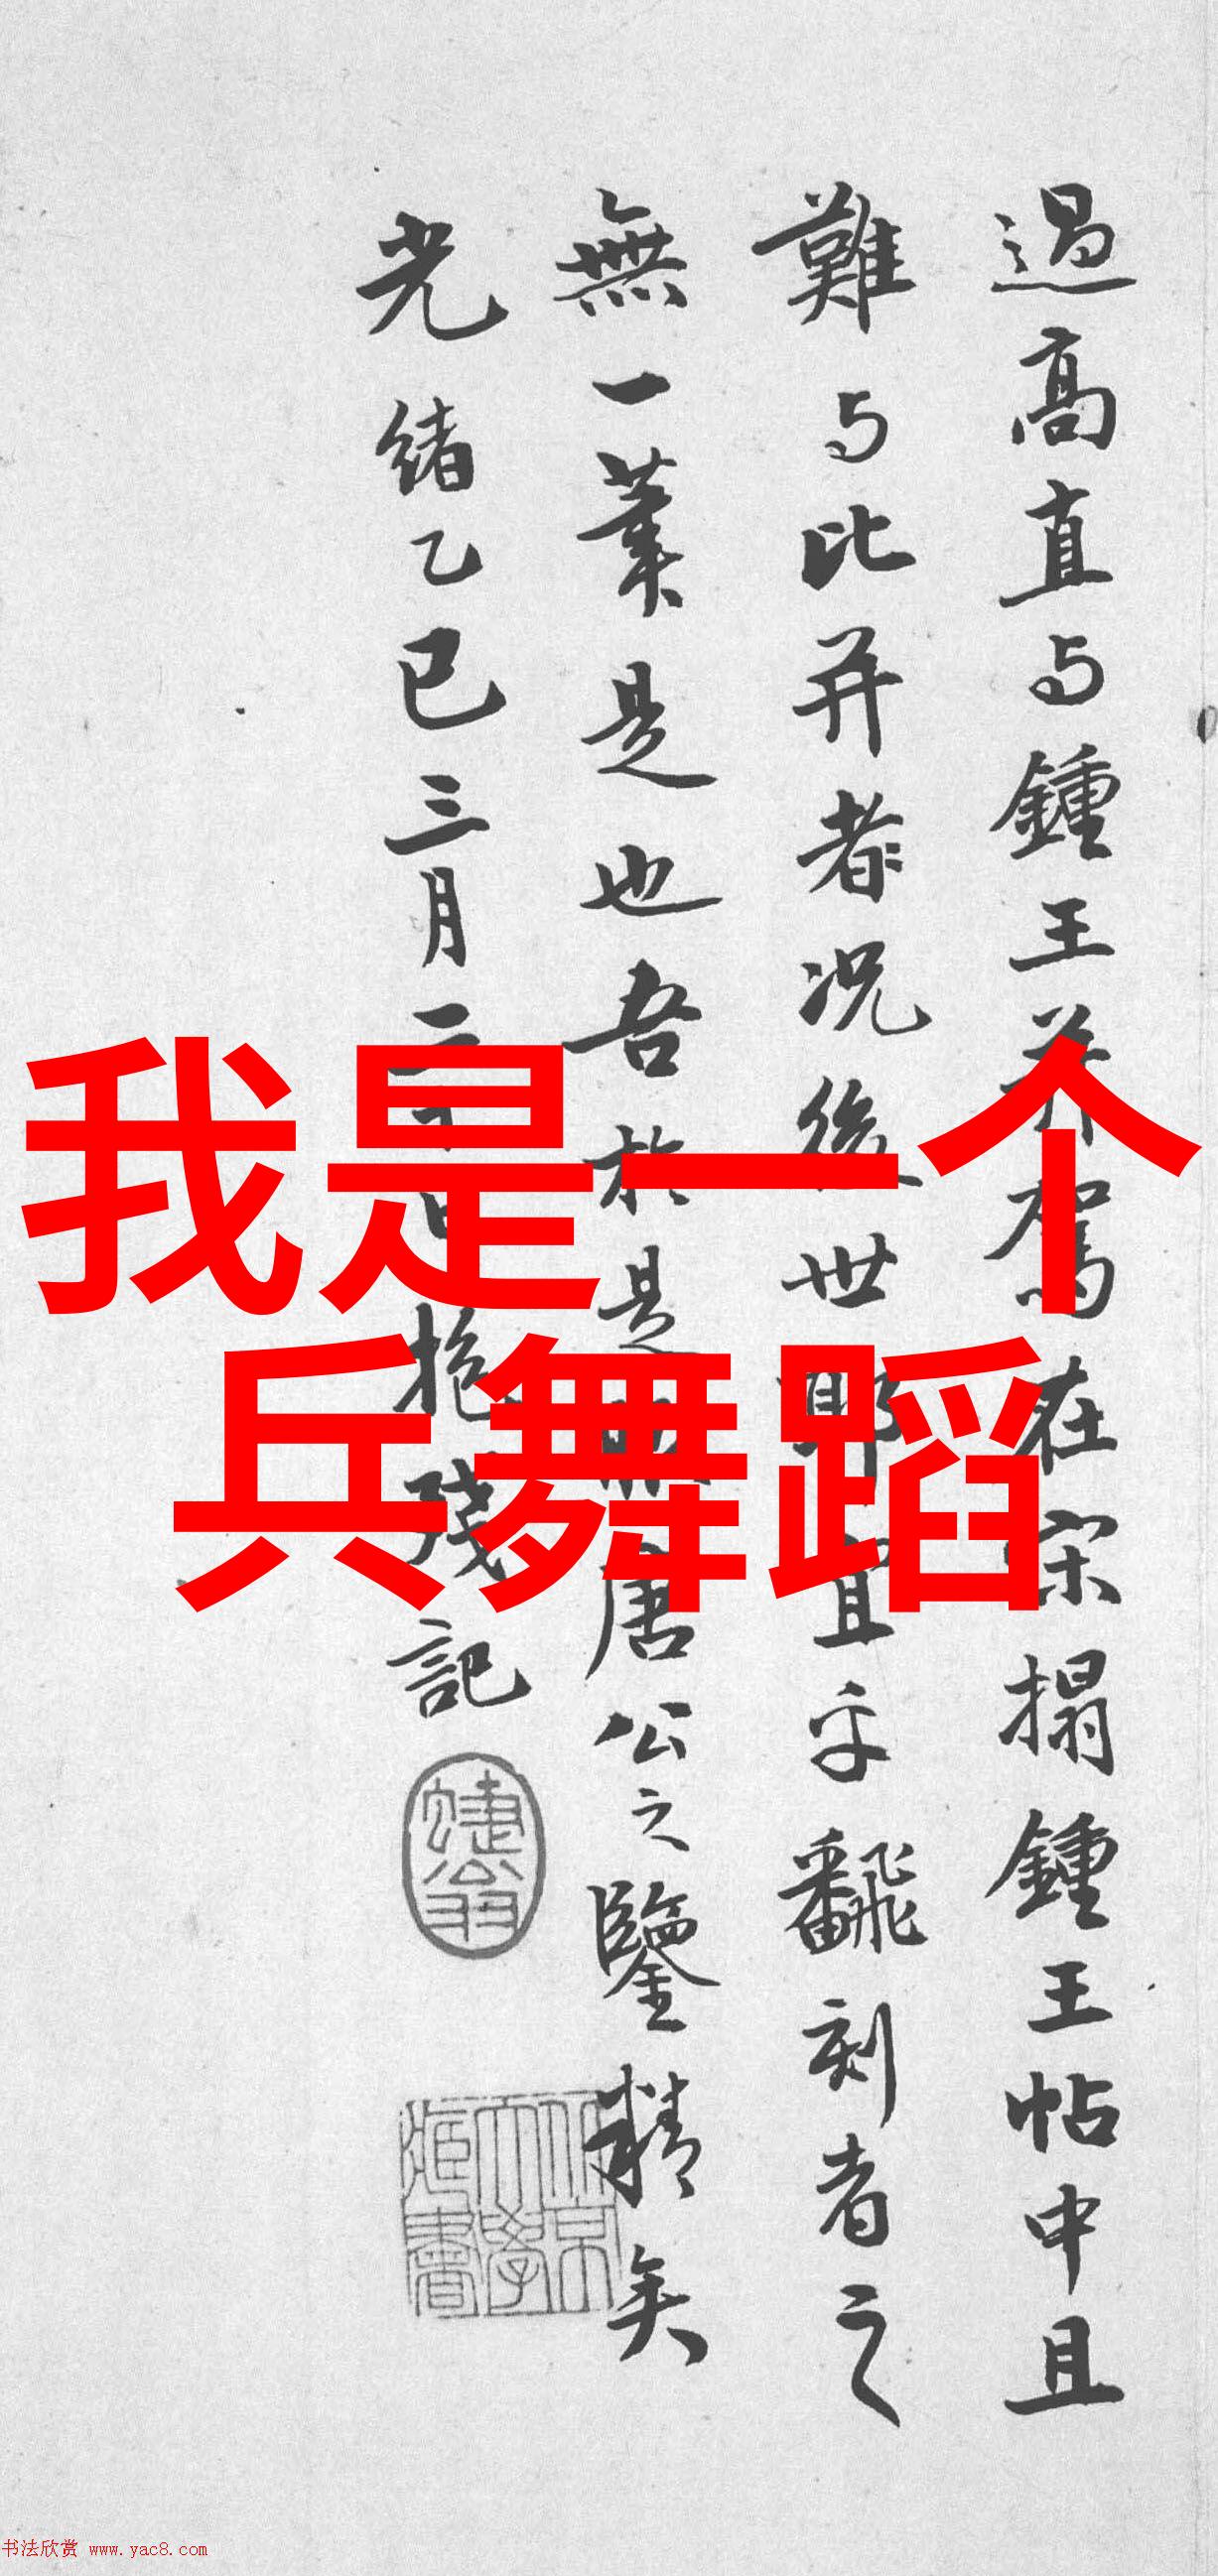 過高直与鍾王并駕在宋搨鍾王帖中且
難与比并者况後世耶乎飜刻者之
無一葉是也吾於是唐公之鑒精矣
光緒乙巳三月二十日抱殘記
北京大學藏書
我是一个
兵舞蹈
书法欣赏 www.yac8.com